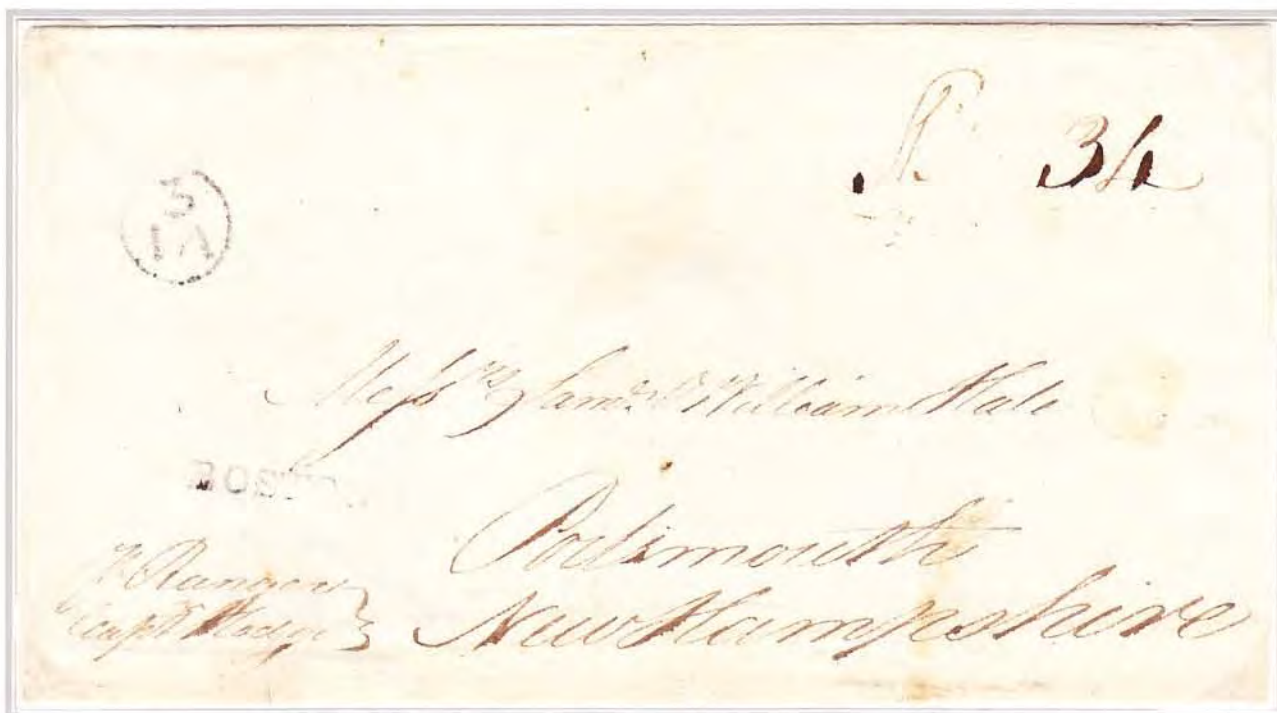 34
5
IA
Mess.rs Sam.l & William Hale
BOSTON
Portsmouth
New Hampshire
p.r Ranger
Cap.t Hodge